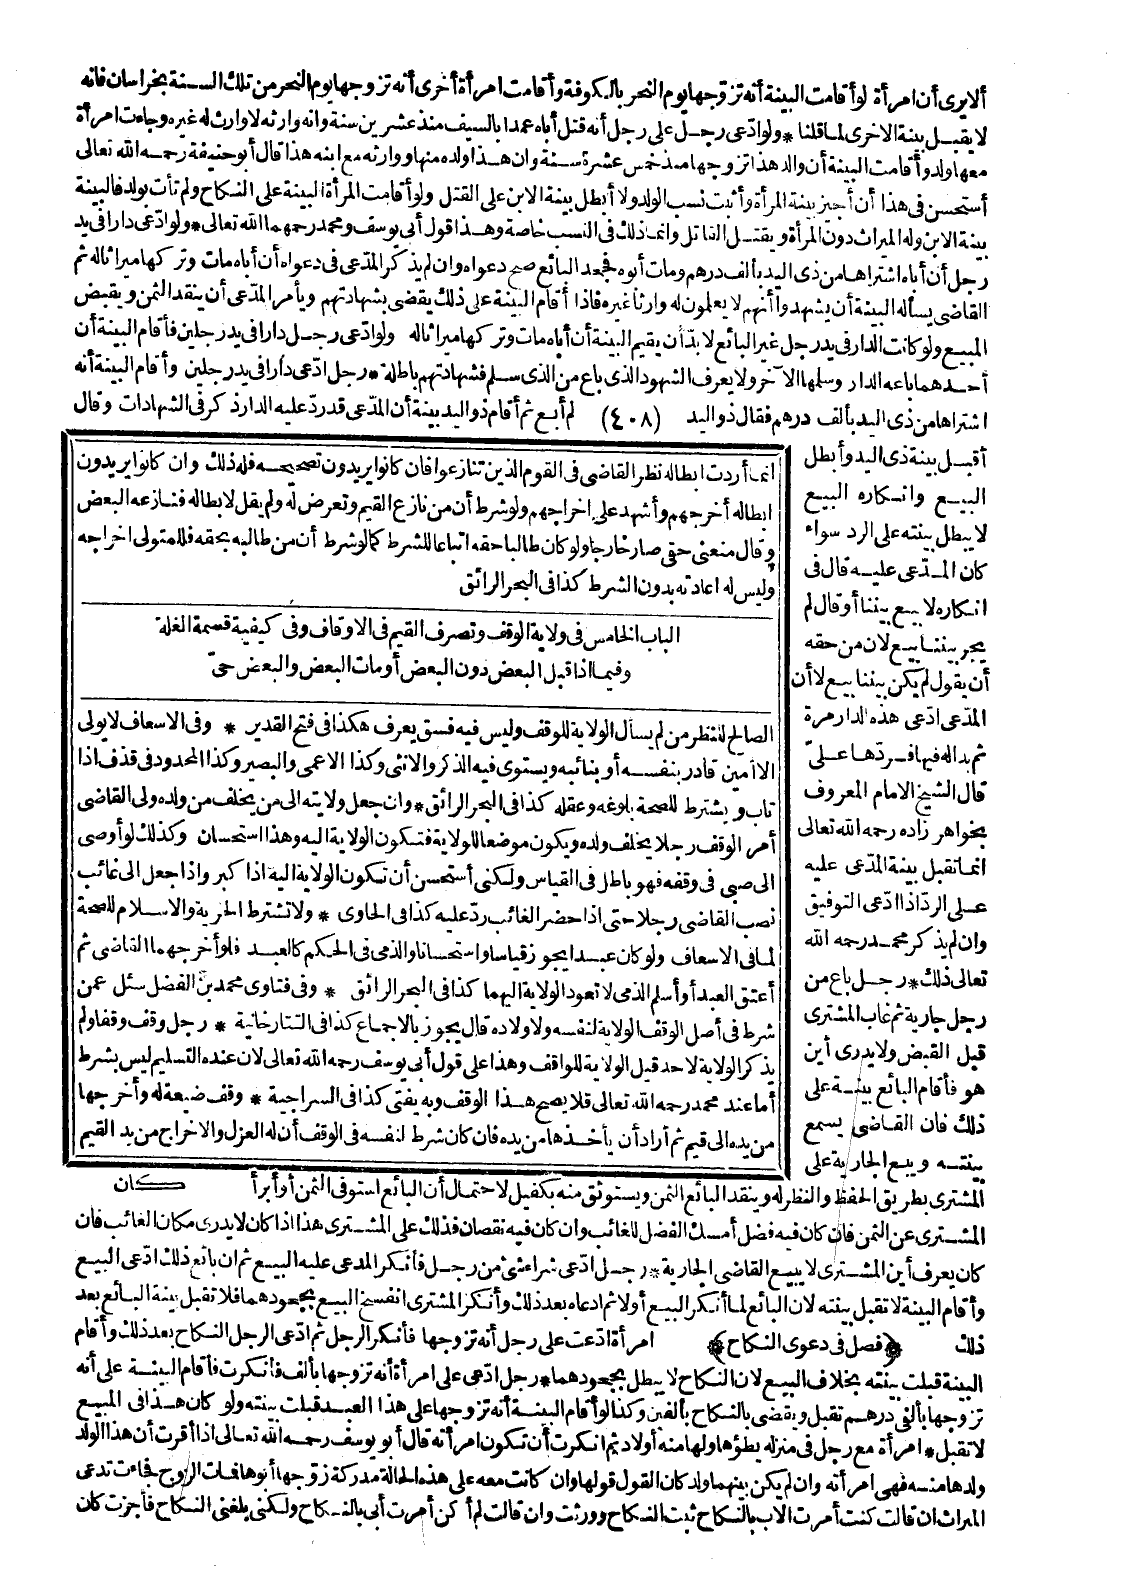 ألا يرى أن امرأة لو أقامت البينة أنه تزوجها يوم النحر بالكوفة وأقامت امرأة أخرى أنه تزوجها يوم النحر من تلك السنة بخراسان فانه
لا يقبل بينة الاخرى لما قلنا * ولو ادّعى رجل على رجل أنه قتل أباه عمدا بالسيف منذ عشرين سنة وانه وارثه لا وارث له غيره وجاءت امرأة
معها ولد وأقامت البينة أن والد هذا تزوجها منذ خمس عشرة سنة وان هذا ولده منها ووارثه مع ابنه هذا قال أبو حنيفة رحمه الله تعالى
أستحسن فى هذا أن أجيز بينة المرأة وأثبت نسب الولد ولا أبطل بينة الابن على القتل ولو أقامت المرأة البينة على النكاح ولم تأت بولد فالبينة
بينة الابن وله الميراث دون المرأة ويقتل القاتل وانما ذلك فى النسب خاصة وهذا قول أبى يوسف ومحمد رحمهما الله تعالى * ولو ادّعى دارا فى يد
رجل أن أباه اشتراها من ذى اليد بألف درهم ومات أبوه فجحد البائع صح دعواه وان لم يذكر المدّعى فى دعواه أن أباه مات وتركها ميراثا له ثم
القاضى يسأله البينة أن يشهدوا أنهم لا يعلمون له وارثا غيره فاذا أقام البينة على ذلك يقضى بشهادتهم ويأمر المدّعى أن ينقد الثمن ويقبض
المبيع ولو كانت الدار فى يد رجل غير البائع لا بدّ أن يقيم البينة أن أباه مات وتركها ميراثا له ولو ادّعى رجل دارا فى يد رجلين فأقام البينة أن
أحدهما باعه الدار وسلمها الآخر ولا يعرف الشهود الذى باع من الذى سلم فشهادتهم باطلة * رجل ادّعى دارا فى يد رجلين وأقام البينة أنه
اشتراها من ذى اليد بألف درهم فقال ذو اليد (٤٠٨) لم أبع ثم أقام ذو اليد بينة أن المدّعى قد ردّ عليه الدار ذكر فى الشهادات وقال
أقبل بينة ذى اليد وأبطل
البيع وانكاره البيع
لا يبطل بينته على الرد سواء
كان المدّعى عليه قال فى
انكاره لا بيع بيننا أو قال لم
يجر بيننا بيع لان من حقه
أن يقول لم يكن بيننا بيع لا أن
المدّعى ادّعى هذه الدار مرة
ثم بدا له فيها فردّها علىّ
قال الشيخ الامام المعروف
بخواهر زاده رحمه الله تعالى
انما تقبل بينة المدّعى عليه
على الردّ اذا ادّعى التوفيق
وان لم يذكر محمد رحمه الله
تعالى ذلك * رجل باع من
رجل جارية ثم غاب المشترى
قبل القبض ولا يدرى أين
هو فأقام البائع بينة على
ذلك فان القاضى يسمع
بينته ويبيع الجارية على
المشترى بطريق الحفظ والنظر له وينقد البائع الثمن ويستوثق منه بكفيل لاحتمال أن البائع استوفى الثمن أو أبرأ
المشترى عن الثمن فان كان فيه فضل أمسك الفضل للغائب وان كان فيه نقصان فذلك على المشترى هذا اذا كان لا يدرى مكان الغائب فان
كان يعرف أين المشترى لا يبيع القاضى الجارية * رجل ادّعى شراء شئ من رجل فأنكر المدعى عليه البيع ثم ان بائع ذلك ادّعى البيع
وأقام البينة لا تقبل بينته لان البائع لما أنكر البيع أولا ثم ادعاه بعد ذلك وأنكر المشترى انفسخ البيع بجحودهما فلا تقبل بينة البائع بعد
ذلك ﴿فصل فى دعوى النكاح﴾ امرأة ادّعت على رجل أنه تزوجها فأنكر الرجل ثم ادّعى الرجل النكاح بعد ذلك وأقام
البينة قبلت بينته بخلاف البيع لان النكاح لا يبطل بجحودهما * رجل ادّعى على امرأة أنه تزوجها بألف فأنكرت فأقام البينة على أنه
تزوجها بألفى درهم تقبل ويقضى بالنكاح بألفين وكذا لو أقام البينة أنه تزوجها على هذا العبد قبلت بينته ولو كان هذا فى المبيع
لا تقبل * امرأة مع رجل فى منزله يطؤها ولها منه أولاد ثم انكرت أن تكون امرأته قال أبو يوسف رحمه الله تعالى اذا أقرت أن هذا الولد
ولدها منه فهى امرأته وان لم يكن بينهما ولد كان القول قولها وان كانت معه على هذه الحالة مدركة زوجها أبوها فات الزوج فجاءت تدعى
الميراث ان قالت كنت أمرت الاب بالنكاح ثبت النكاح وورثت وان قالت لم أكن أمرت أبى بالنكاح ولكنى بلغنى النكاح فأجزت كان
انما أردت ابطاله نظر القاضى فى القوم الذين تنازعوا فان كانوا يريدون تصحيحه فله ذلك وان كانوا يريدون
ابطاله أخرجهم وأشهد على اخراجهم ولو شرط أن من نازع القيم وتعرض له ولم يقل لابطاله فنازعه البعض
وقال منعنى حقى صار خارجا ولو كان طالبا حقه اتباعا للشرط كما لو شرط أن من طالبه بحقه فللمتولى اخراجه
وليس له اعادته بدون الشرط كذا فى البحر الرائق
الباب الخامس فى ولاية الوقف وتصرف القيم فى الاوقاف وفى كيفية قسمة الغلة
وفيما اذا قبل البعض دون البعض أو مات البعض والبعض حىّ
الصالح للنظر من لم يسأل الولاية للوقف وليس فيه فسق يعرف هكذا فى فتح القدير * وفى الاسعاف لا يولى
الا أمين قادر بنفسه أو بنائبه ويستوى فيه الذكر والانثى وكذا الاعمى والبصير وكذا المحدود فى قذف اذا
تاب ويشترط للصحة بلوغه وعقله كذا فى البحر الرائق * وان جعل ولايته الى من يخلف من ولده ولى القاضى
أمر الوقف رجلا يخلف ولده ويكون موضعا للولاية فتكون الولاية اليه وهذا استحسان وكذلك لو أوصى
الى صبى فى وقفه فهو باطل فى القياس ولكنى أستحسن أن تكون الولاية اليه اذا كبر واذا جعل الى غائب
نصب القاضى رجلا حتى اذا حضر الغائب ردّ عليه كذا فى الحاوى * ولا تشترط الحرية والاسلام للصحة
لما فى الاسعاف ولو كان عبدا يجوز قياسا واستحسانا والذمى فى الحكم كالعبد فلو أخرجهما القاضى ثم
أعتق العبد أو أسلم الذمى لا تعود الولاية اليهما كذا فى البحر الرائق * وفى فتاوى محمد بن الفضل سئل عمن
شرط فى أصل الوقف الولاية لنفسه ولاولاده قال يجوز بالاجماع كذا فى التتارخانية * رجل وقف وقفا ولم
يذكر الولاية لاحد قيل الولاية للواقف وهذا على قول أبى يوسف رحمه الله تعالى لان عنده التسليم ليس بشرط
أما عند محمد رحمه الله تعالى فلا يصح هذا الوقف وبه يفتى كذا فى السراجية * وقف ضيعة له وأخرجها
من يده الى قيم ثم أراد أن يأخذها من يده فان كان شرط لنفسه فى الوقف أن له العزل والاخراج من يد القيم
كان